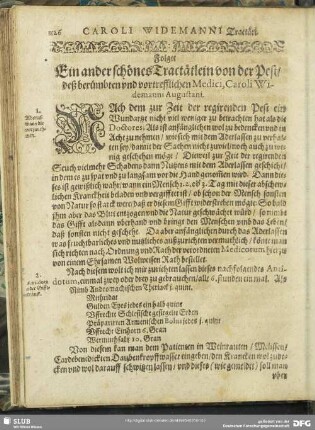 126
CAROLI WIDEMANNI Tractätl.
Folget
Ein ander schönes Tractätlein von der Pest/
deß berümbten und vortrefflichen Medici, Caroli Wi-
demanns Augustani.
1.
NAch dem zur Zeit der regirenden Pest ein
Wundartzt nicht viel weniger zu betrachten hat als die
Doctores: Als ist anfänglichen wol zu bedencken und in
Acht zu nehmen/ wie sich mit dem Aderlassen zu verhal-
ten sey/ damit die Sachen nicht zu viel noch auch zu we-
nig geschehen möge/ Dieweil zur Zeit der regirenden
Seuch vielmehr Schadens dann Nutzens mit dem Aderlassen geschicht/
in dem es zu spat und zu langsam vor die Hand genommen wird/ Dann die-
ses ist gewißlich wahr/ wann ein Mensch
lichen Kranckheit beladen
von Natur so starck wer/ daß er diesem Gifft widerstehen möge: So bald
ihm aber das Blut entgegen und die Natur geschwächet würd/
das Gifft alsdann oberhand und bringt den Menschen umb das Leben/
daß sonsten nicht geschehe. Da aber anfänglichen durch das Aderlassen
was fruchtbarliches und nützliches außzurichten verm
sich richten nach Ordnung und Rath der verordneten Medicorum
von einem Ehrsamen Wolweisen Rath bestellet.
2.
Nach diesem wolt ich mir zurichten lassen dieses nachfolgendes Anti-
dotum, einmal zwey oder drey zu gebrauchen/ alle 6. stunden ein mal. Als
Nimb Andromachischen Thiriacks 1. quint.
Methridat
Gulden Eyes jedes ein halb quint.
Præpariren Armenischen Bolus jedes 1. quint.
Einhorn 6. Gran
Wermuthsaltz 10. Gran
Von diesem kan man dem Patienten in Weinrauten/ Melissen/
Cardebenedickten Taubenkropffwasser eingeben/ den Krancken wol zude-
cken und wol darauff schwitzen lassen/ und dieses/ wie gemeldet/ soll man
uben
SLUB
Wir führen Wissen.
gefördert von der
DFG
Deutschen Forschungsgemeinschaft